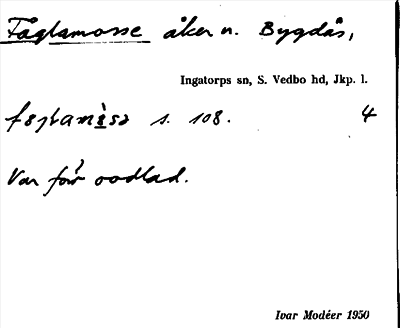 Fåglamosse åker n. Bygdås,
Ingatorps sn, S. Vedbo hd, Jkp. l.
s. 108. 4
Var förr oodlad.
Ivar Modéer 1950